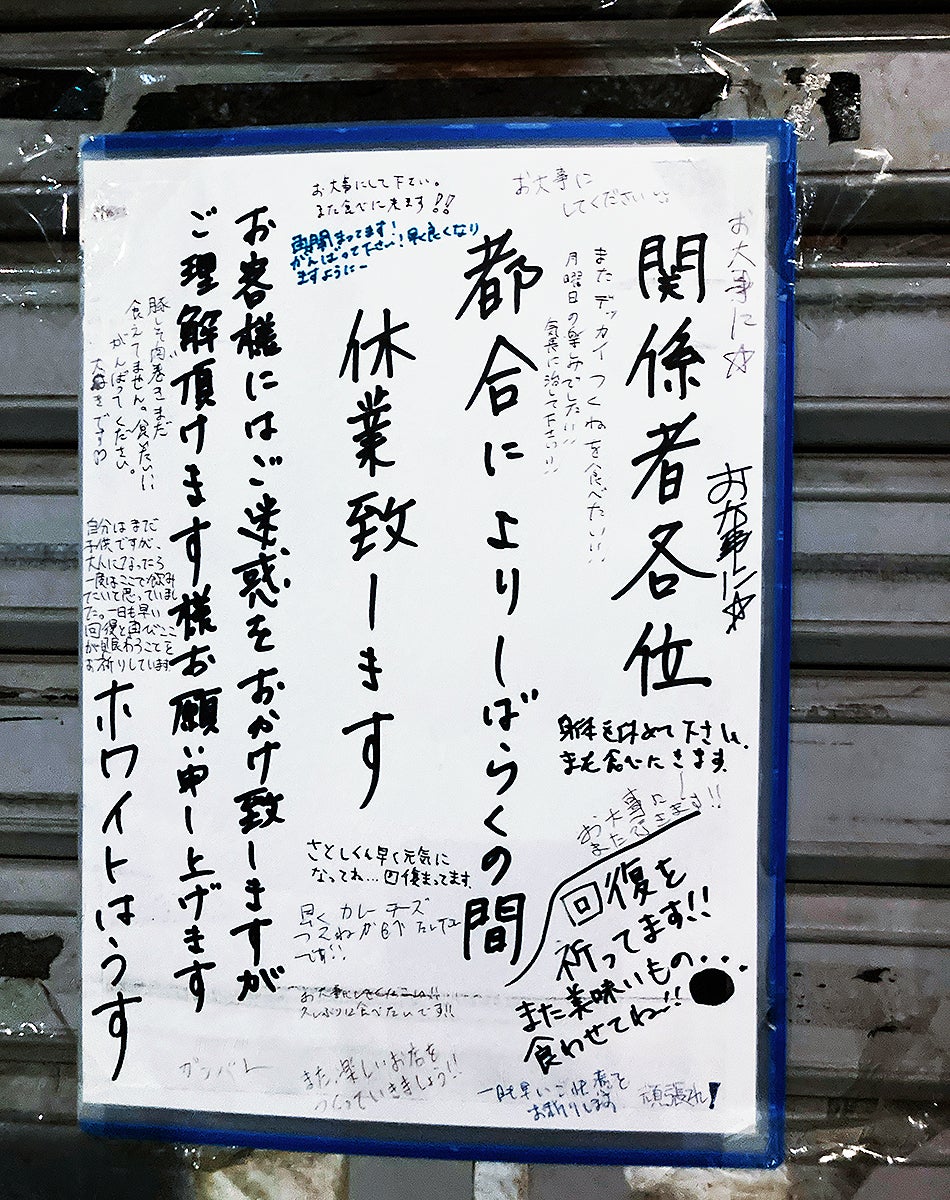 関係者各位
都合によりしばらくの間
休業致します
お客様にはご迷惑をおかけ致しますが
ご理解頂けます様お願い申し上げます
ホワイトはうす
お大事に☆
お大事に☆
お大事に
してください
お大事にして下さい。
また食べに来ます!!
再開まってます!
がんばって下さい!早く良くなり
ますようにー
またデッカイつくねを食べたい!!
月曜日の楽しみでしたい!!
気長に治して下さい!!
豚しそ肉巻きまだ
食えてません。食べたいに
がんばってください。
大好きです!!
自分はまだ
子供ですが、
大人になったら
一度はここで飲み
たいと思っていまし
た。一日も早い
回復と再びここ
が賑わうことを
お祈りしています
身体を休めて下さい。
また食べにきます。
お大事にー
また来ます!!
回復を
祈ってます!!
また美味いもの・・・
食わせてね〜!!
さとしくん早く元気に
なってね…回復まってます。
早くカレーチーズ
つくねが
です!!
久しぶりに食べたいです!!
ガンバレ
また、楽しいお店を
つくっていきましょう!!
一日も早いご快癒を
お祈りします
頑張れ!